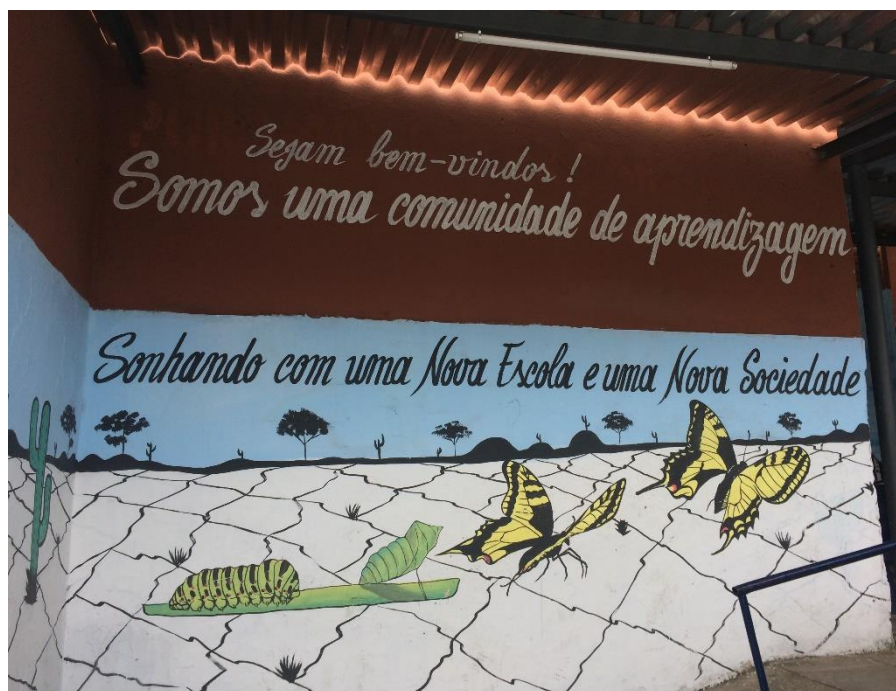 Sejam bem-vindos!
Somos uma comunidade de aprendizagem
Sonhando com uma Nova Escola e uma Nova Sociedade